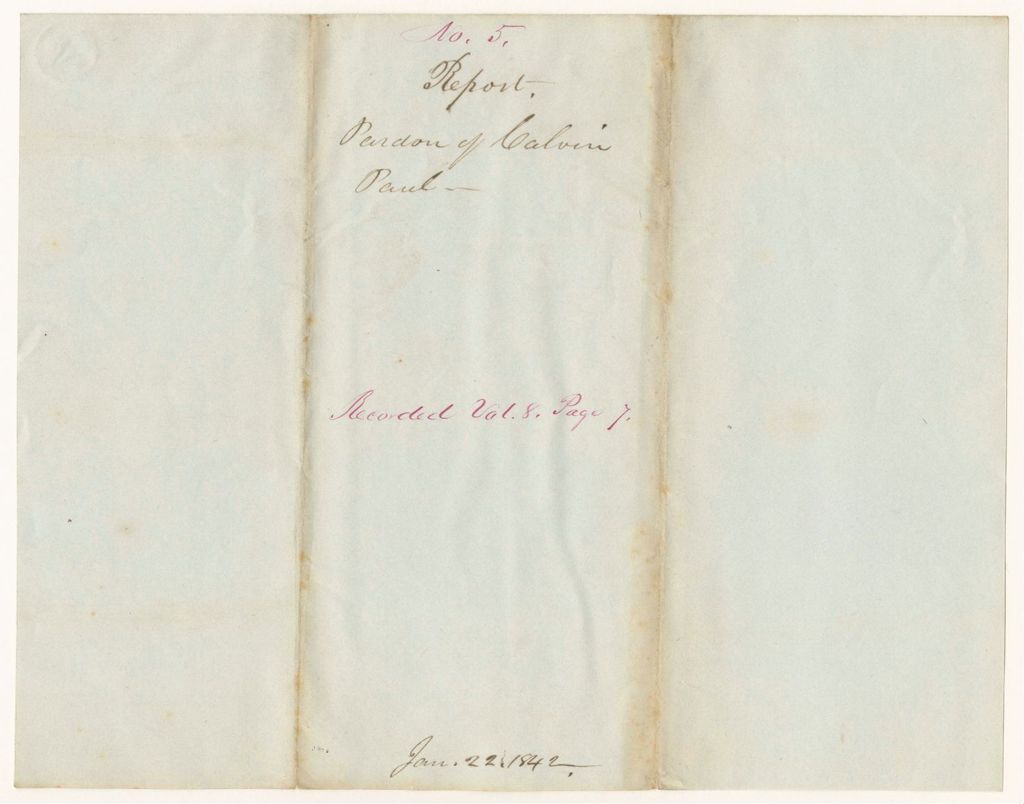 No. 5.
Report.
Pardon of Calvin
Paul —
Recorded Vol. 8. Page 7.
Jan. 22. 1842.